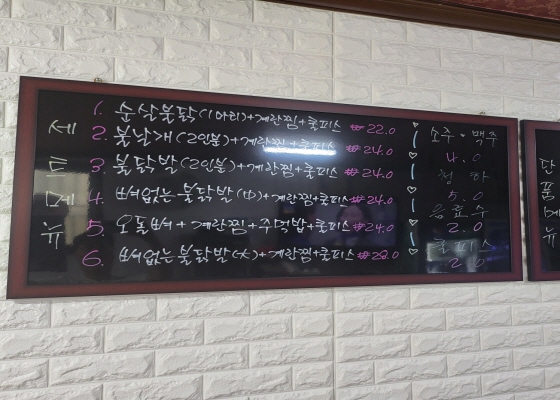 세트메뉴
1. 순살불닭(1마리)+계란찜+쿨피스 ₩22.0
2. 불날개(2인분)+계란찜+쿨피스 ₩24.0
3. 불닭발(2인분)+계란찜+쿨피스 ₩24.0
4. 뼈없는불닭발(中)+계란찜+쿨피스 ₩24.0
5. 오돌뼈+계란찜+주먹밥+쿨피스 ₩24.0
6. 뼈없는불닭발(大)+계란찜+쿨피스 ₩28.0
소주·맥주
4.0
청하
5.0
음료수
2.0
쿨피스
2.0
단품메뉴